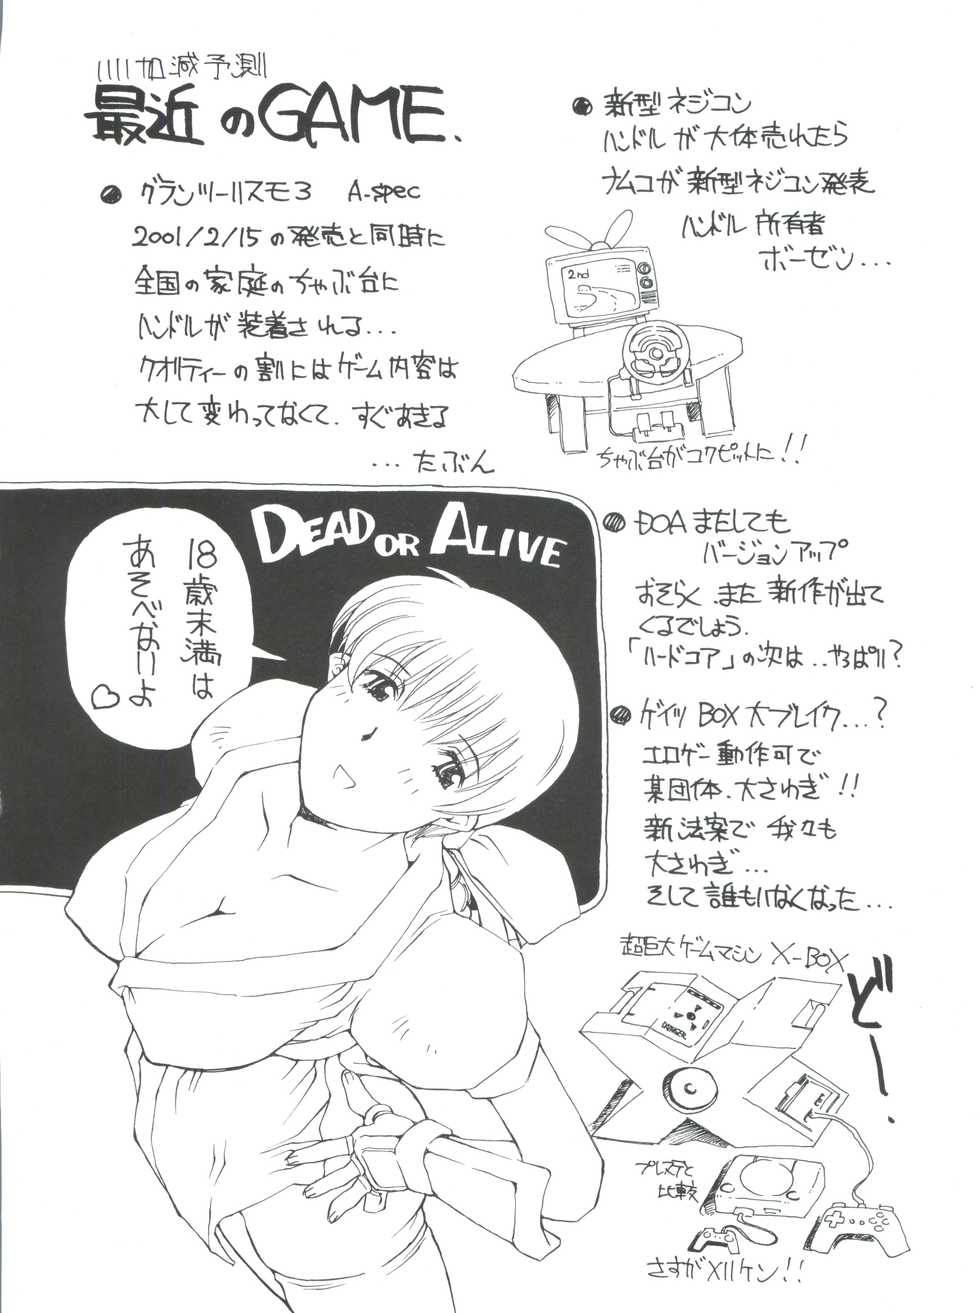 いいかげん予測
最近のGAME.
● グランツーリスモ3 A-spec
2001/2/15の発売と同時に
全国の家庭のちゃぶ台に
ハンドルが装着される...
クオリティーの割にはゲーム内容は
大して変わってなくて、すぐあきる
...たぶん
● 新型ネジコン
ハンドルが大体売れたら
ナムコが新型ネジコン発表
ハンドル所有者
ボーゼン...
2nd
ちゃぶ台がコクピットに!!
DEAD OR ALIVE
18歳未満は
あそべないよ
♡
● DOAまたしても
バージョンアップ
おそらく、また新作が出て
くるでしょう.
「ハードコア」の次は...やっぱり?
● ゲイツBOX大ブレイク...?
エロゲー動作可で
某団体、大さわぎ!!
新法案で我々も
大さわぎ...
そして誰もいなくなった...
超巨大ゲームマシン X-BOX
どー.
DANGER
プレステと
比較
さすがメリケン!!